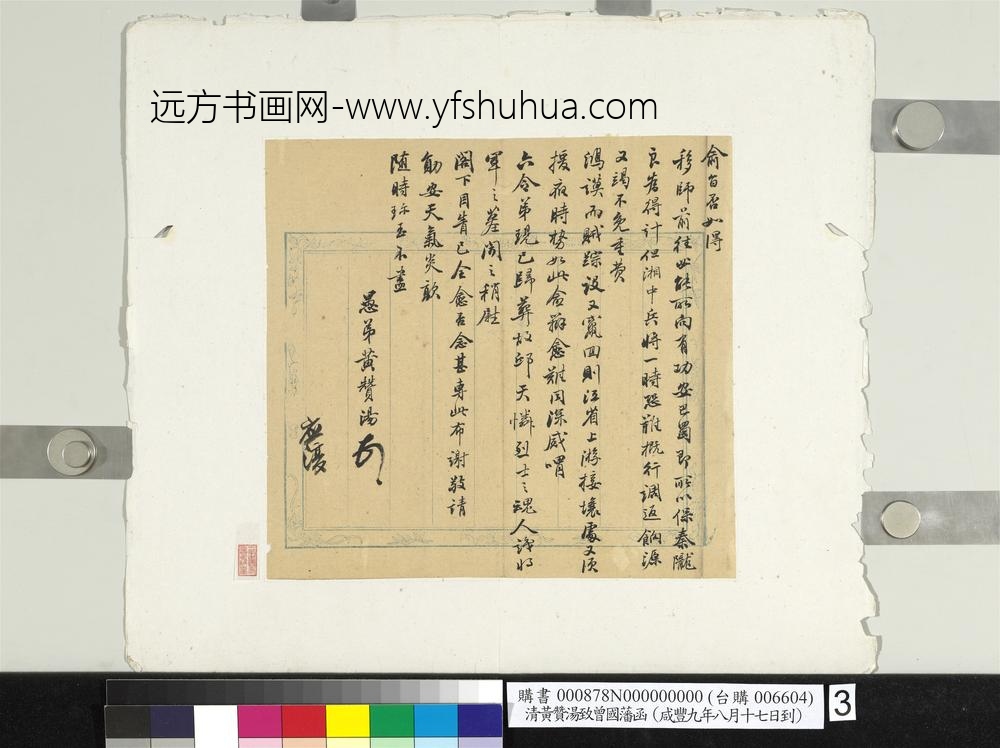 远方书画网-www.yfshuhua.com
俞旨否如得
移師前往必能所向有功安巴蜀即所以保秦隴
良為得計但湘中兵將一時恐難概行調返餉源
又竭不免重費
鴻謨而賊蹤設又竄回則江省上游接壤處又須
援應時勢如此合辦愈難同深感喟
六令弟現已歸葬故邱天憐烈士之魂人識將
軍之墓聞之稍慰
閣下目眚已全愈否念甚專此布謝敬請
勛安天氣炎歊
隨時珍玉不盡
愚弟黃贊湯
購書 000878N000000000 (台購 006604)
清黃贊湯致曾國藩函 (咸豐九年八月十七日到)
3